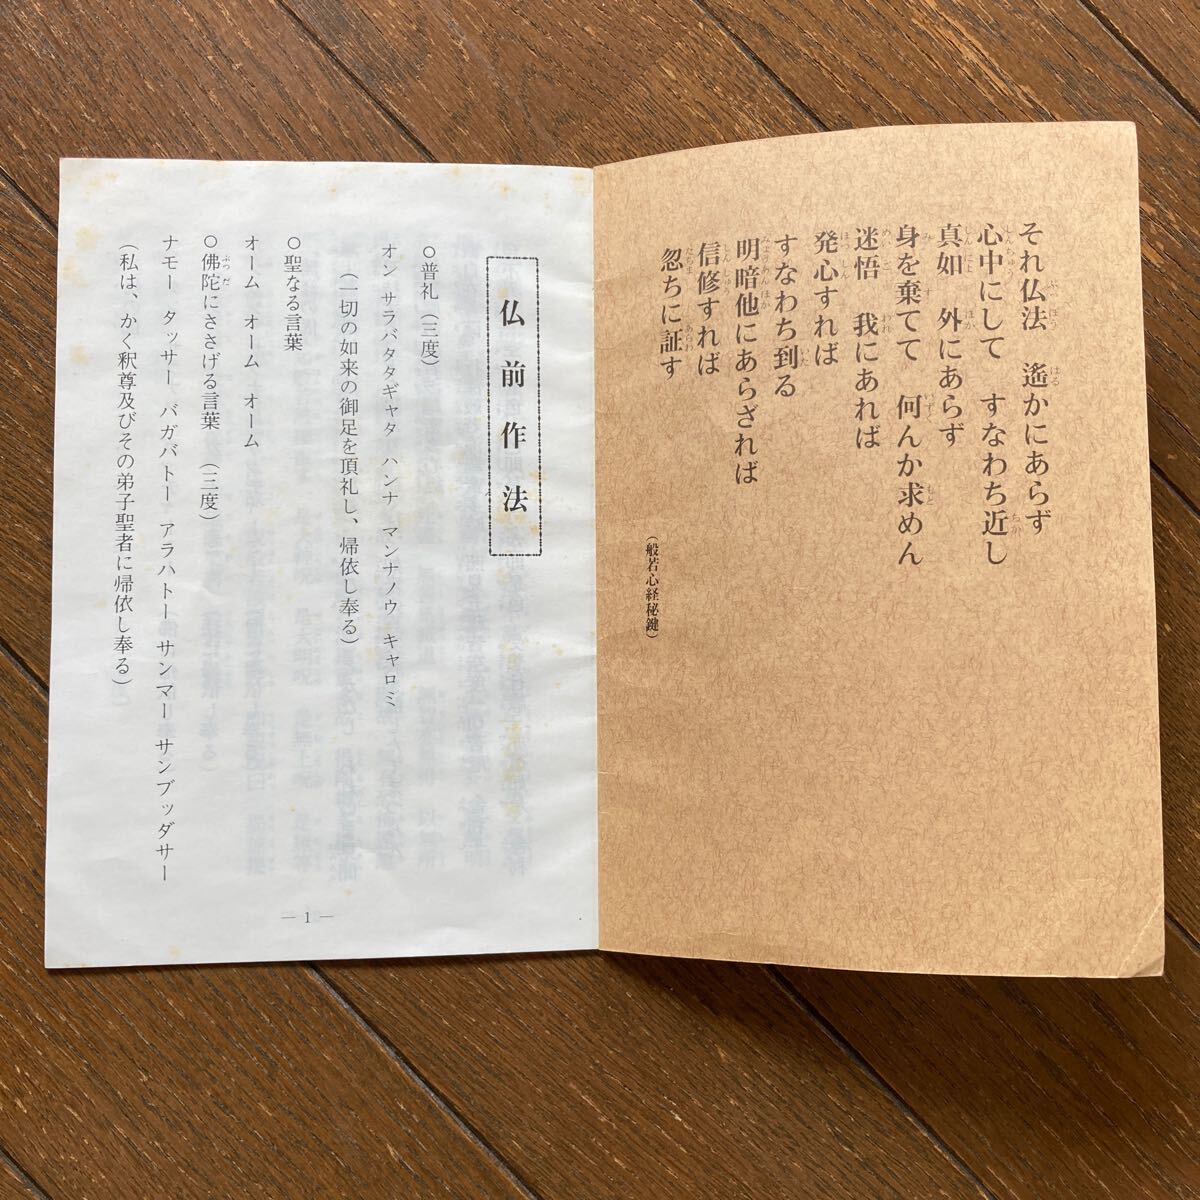 それ仏法　遙かにあらず
心中にして　すなわち近し
真如　外にあらず
身を棄てて　何んか求めん
迷悟　我にあれば
発心すれば
すなわち到る
明暗他にあらざれば
信修すれば
忽ちに証す
（般若心経秘鍵）
仏前作法
○普礼（三度）
オン　サラバタタギャタ　ハンナ　マンナノウ　キャロミ
（一切の如来の御足を頂礼し、帰依し奉る）
○聖なる言葉
オーム　オーム　オーム
○佛陀にささげる言葉　（三度）
ナモー　タッサー　バガバトー　アラハトー　サンマー　サンブッダサー
（私は、かく釈尊及びその弟子聖者に帰依し奉る）
— 1 —